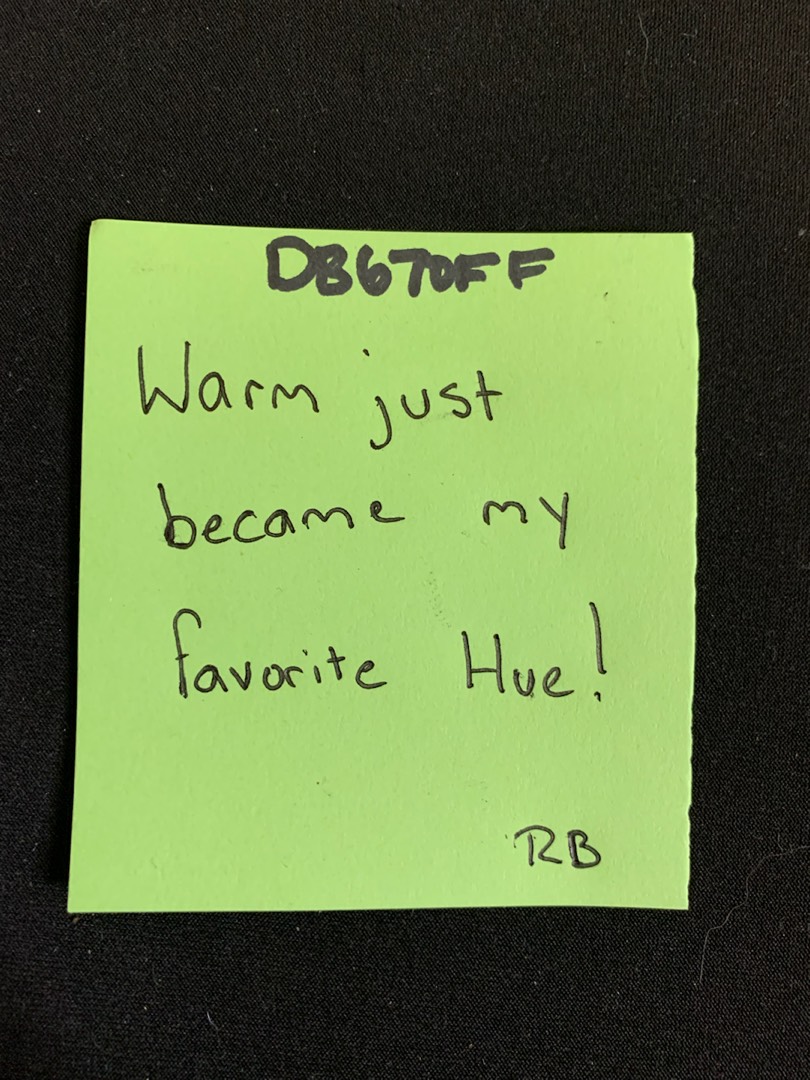 DB670FF
Warm just
became my
favorite Hue!
RB